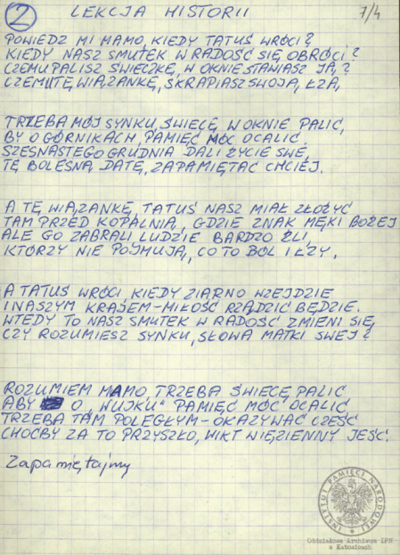 2 LEKCJA HISTORII 7/4
POWIEDZ MI MAMO, KIEDY TATUŚ WRÓCI?
KIEDY NASZ SMUTEK W RADOŚĆ SIĘ OBRÓCI?
CZEMU PALISZ ŚWIECZKĘ, W OKNIE STAWIASZ JĄ,?
CZEMU TĘ WIĄZANKĘ, SKRAPIASZ SWOJĄ, ŁZĄ,
TRZEBA MÓJ SYNKU, ŚWIECĘ W OKNIE PALIĆ,
BY O GÓRNIKACH, PAMIĘĆ MÓC OCALIĆ.
SZESNASTEGO GRUDNIA DALI ŻYCIE SWE,
TĘ BOLESNĄ DATĘ, ZAPAMIĘTAĆ CHCIEJ.
A TĘ WIĄZANKĘ, TATUŚ NASZ MIAŁ ZŁOŻYĆ
TAM PRZED KOPALNIĄ, GDZIE ZNAK MĘKI BOŻEJ
ALE GO ZABRALI, LUDZIE BARDZO ŹLI,
KTÓRZY NIE POJMUJĄ, CO TO BÓL I ŁZY.
A TATUŚ WRÓCI, KIEDY ZIARNO WZEJDZIE
I NASZYM KRAJEM-MIŁOŚĆ RZĄDZIĆ BĘDZIE.
WTEDY TO NASZ SMUTEK W RADOŚĆ ZMIENI SIĘ,
CZY ROZUMIESZ SYNKU, SŁOWA MATKI SWEJ?
ROZUMIEM MAMO TRZEBA ŚWIECĘ PALIĆ
ABY O "WUJKU" PAMIĘĆ MÓC OCALIĆ,
TRZEBA TAM POLEGŁYM-OKAZYWAĆ CZEŚĆ
CHOĆBY ZA TO PRZYSZŁO, WIKT WIĘZIENNY JEŚĆ.
Zapamiętajmy
INSTYTUT PAMIĘCI NARODOWEJ
Oddziałowe Archiwum IPN
w Katowicach